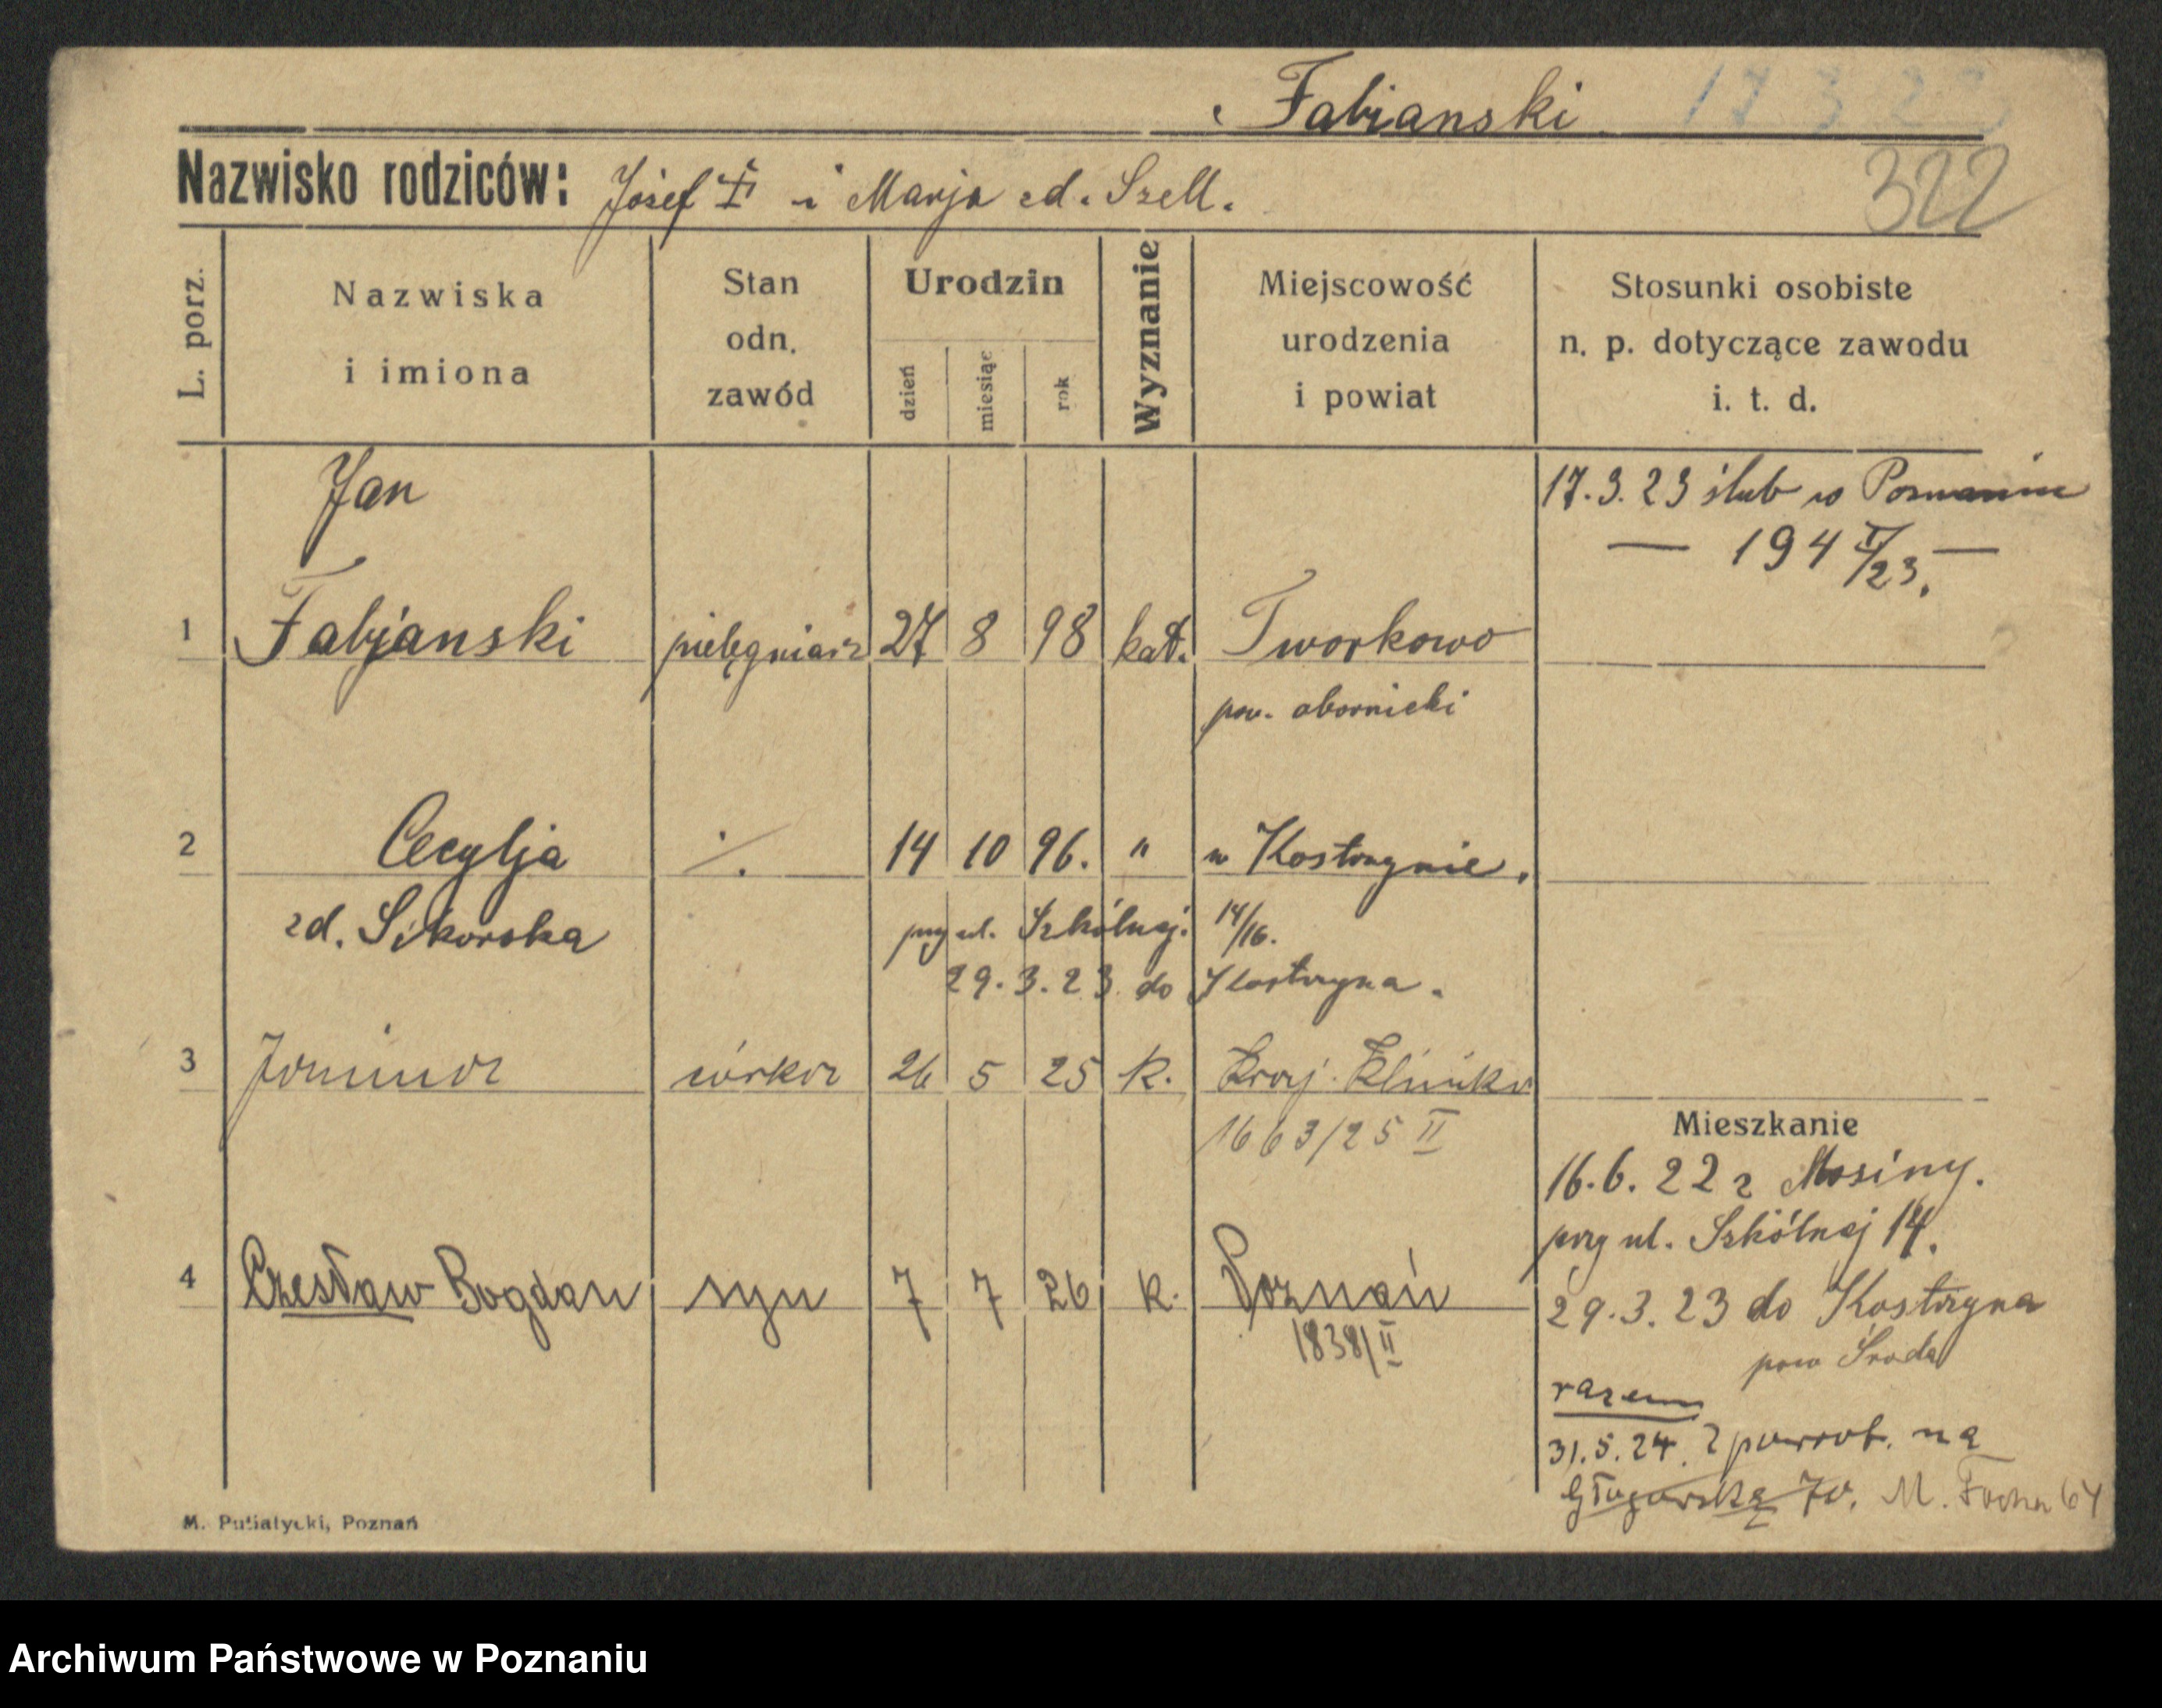 Fabianski 17 3 23
322
Nazwisko rodziców: Józef F. i Marja zd. Szell.
L. porz.
Nazwiska i imiona
Stan odn. zawód
Urodzin
dzień miesiąc rok
Wyznanie
Miejscowość urodzenia i powiat
Stosunki osobiste n. p. dotyczące zawodu i. t. d.
17.3.23 ślub w Poznaniu
— 194 II/23. —
Jan
1 Fabjanski pielęgniarz 27 8 98 kat. Tworkowo
pow. obornicki
2 Cecylja ./. 14 10 96. " w Kostrzynie.
zd. Sikorska przy ul. Szkólnej. 14/16.
29.3.23 do Kostrzyna.
3 Janina córka 26 5 25 k. Kraj. Klinika
1663/25 II
4 Czesław Bogdan syn 7 7 26 k. Poznań
1838/II
Mieszkanie
16.6.22 z Mosiny.
przy ul. Szkólnej 14.
29.3.23 do Kostrzyna
pow Środa
razem
31.5.24. z powrot. na
Głogowską 70. M. Focha 64
M. Putiatycki, Poznań
Archiwum Państwowe w Poznaniu